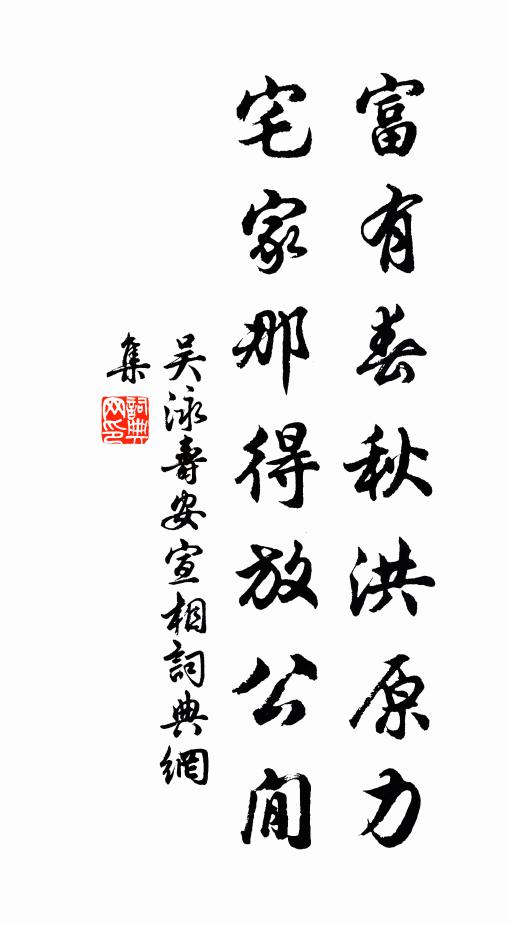 富有春秋洪原力
宅家那得放公閒
吴泳壽安宣相詞典網
集
詞典網印